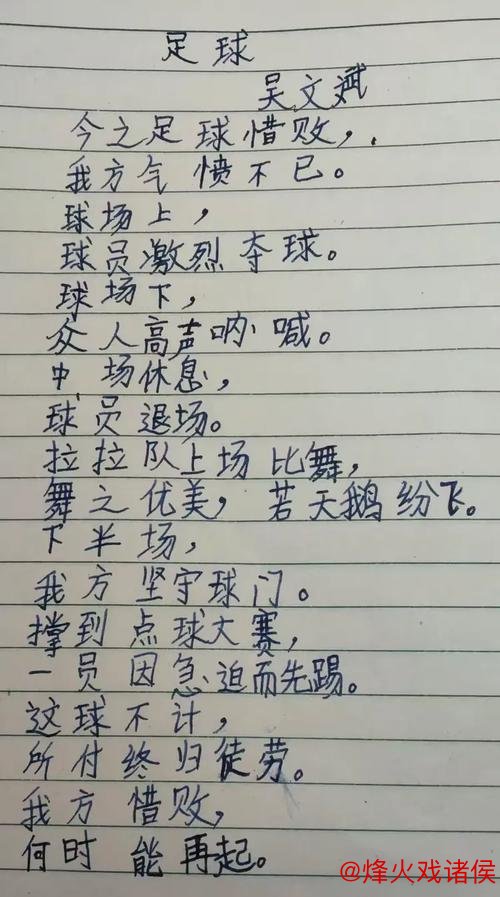 足球
吴文斌
今之足球惜败，.
我方气愤不已。
球场上，
球员激烈夺球。
球场下，
众人高声呐喊。
中场休息，
球员退场。
拉拉队上场比舞，
舞之优美，若天鹅纷飞。
下半场，
我方坚守球门。
撑到点球大赛，
一员因急迫而先踢。
这球不计，
所付终归徒劳。
我方惜败，
何时能再起。
@烽火戏诸侯